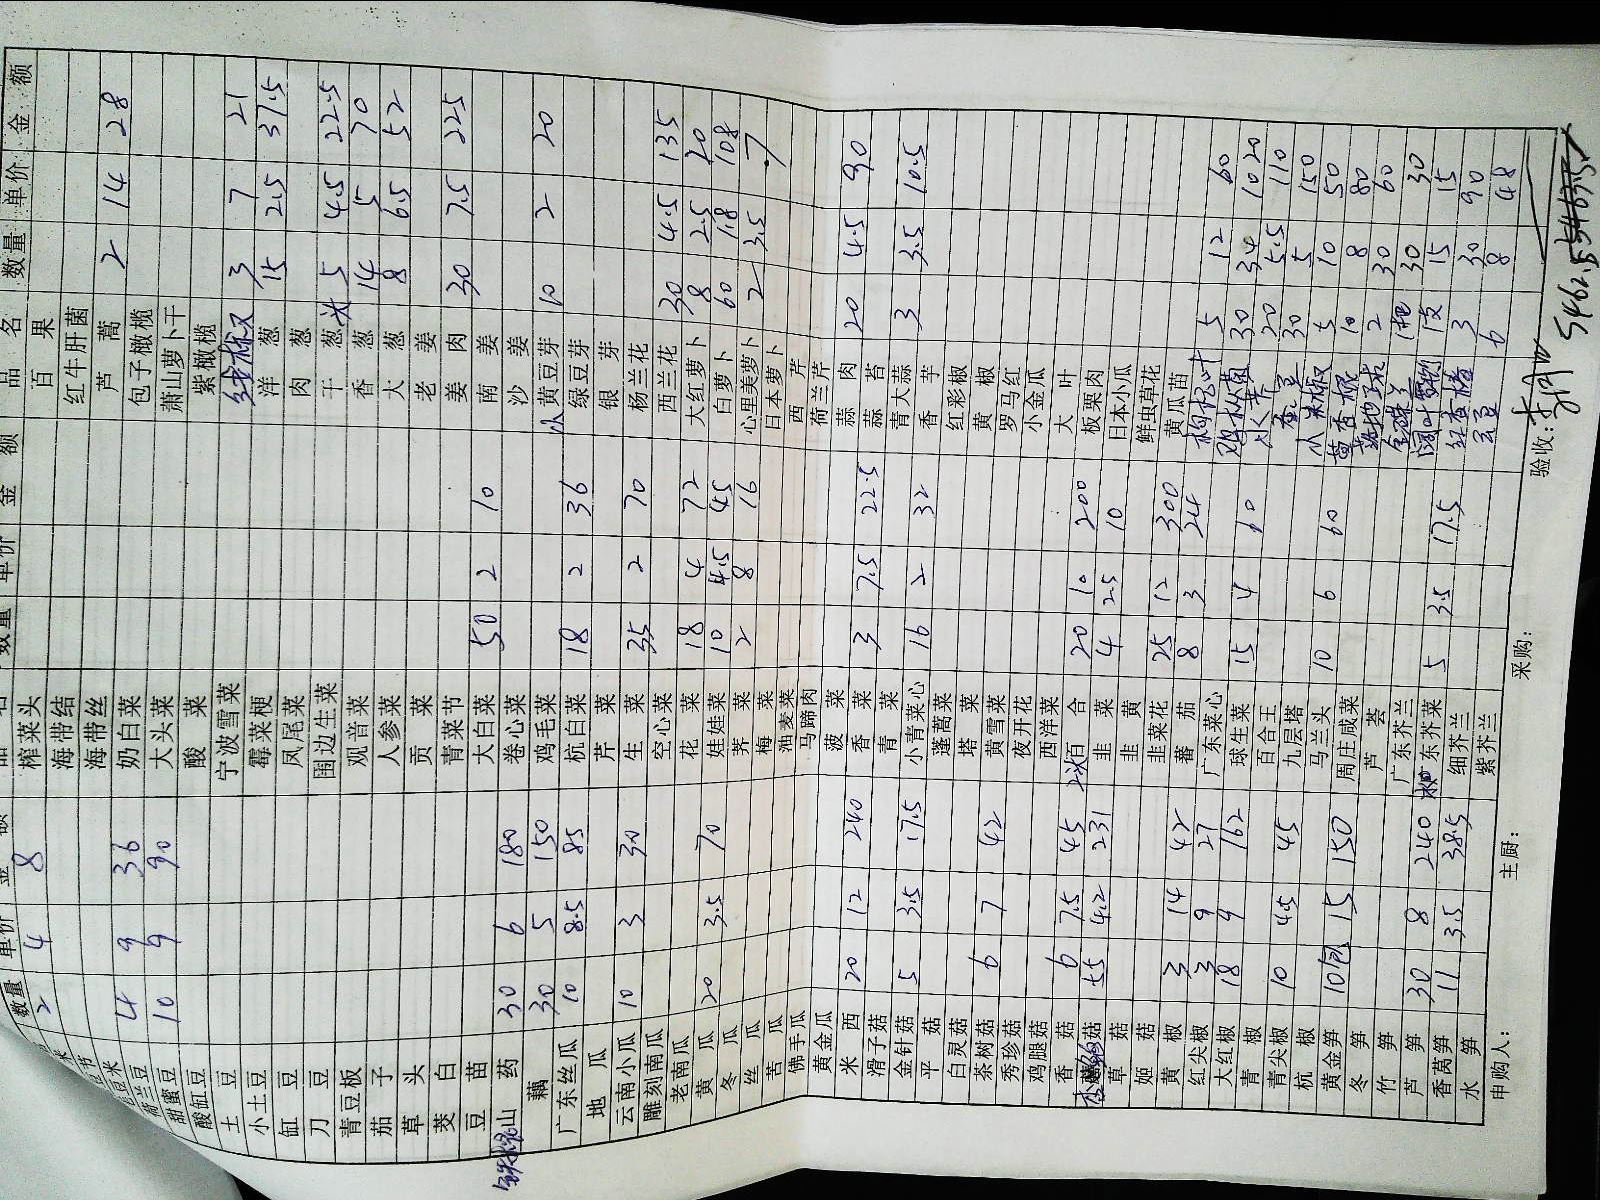 数量 单价 金额
2 4 8
荷兰豆 4 9 36
甜蜜豆 10 9 90
酸缸豆
土豆
小土豆
缸豆
刀豆
青豆板
茄子
草头
茭白
豆苗
铁棍山药 30 6 180
藕 30 5 150
广东丝瓜 10 8.5 85
地瓜
云南小瓜 10 3 30
雕刻南瓜
老南瓜
黄瓜 20 3.5 70
冬瓜
丝瓜
苦瓜
佛手瓜
黄金瓜
米西 20 12 240
滑子菇
金针菇 5 3.5 17.5
平菇
白灵菇
茶树菇 6 7 42
秀珍菇
鸡腿菇
香菇 6 7.5 45
杏鲍菇 55 4.2 231
草菇
姬菇
黄椒 3 14 42
红尖椒 3 9 27
大红椒 18 9 162
青椒
青尖椒 10 4.5 45
杭椒
黄金笋 10包 15 150
冬笋
竹笋
芦笋 30 8 240
香莴笋 11 3.5 38.5
水笋
品名 数量 单价 金额
榨菜头
海带结
海带丝
奶白菜
大头菜
酸菜
宁波雪菜
霉菜梗
凤尾菜
围边生菜
观音菜
人参菜
贡菜
青菜节
大白菜 50 2 10
卷心菜
鸡毛菜
杭白菜 18 2 36
芹菜
生菜 35 2 70
空心菜
花菜 18 4 72
娃娃菜 10 4.5 45
荠菜 2 8 16
梅菜
油麦菜
马蹄肉
菠菜
香菜 3 7.5 22.5
青菜
小青菜心 16 2 32
蓬蒿菜
塔菜
黄雪菜
夜开花
西洋菜
百合 20 10 200
韭菜 4 2.5 10
韭黄
韭菜花 25 12 300
蕃茄 8 3 24
广东菜心
球生菜 15 4 60
百合王
九层塔
马兰头 10 6 60
周庄咸菜
芦荟
广东芥兰
广东芥菜 5 3.5 17.5
细芥兰
紫芥兰
品名 数量 单价 金额
百果
红牛肝菌
芦蒿 2 14 28
包子橄榄
萧山萝卜干
紫橄榄
3 7 21
洋葱 15 2.5 37.5
肉葱
干葱头 5 4.5 22.5
香葱 14 5 70
大葱 8 6.5 52
老姜
姜肉 30 7.5 225
南姜
沙姜
小黄豆芽 10 2 20
绿豆芽
银芽
杨兰花
西兰花 30 4.5 135
大红萝卜 8 2.5 20
白萝卜 60 1.8 108
心里美萝卜 2 3.5 7
日本萝卜
西芹
荷兰芹
蒜肉 20 4.5 90
蒜苔
青大蒜 3 3.5 10.5
香芋
红彩椒
黄椒
罗马红
小金瓜
大叶
板栗肉
日本小瓜
鲜虫草花
黄瓜苗
枸杞叶 5 12 60
鸡枞菌 30 34 1020
20 5.5 110
30 5 150
小米椒 5 10 50
草香根 10 8 80
2 30 60
1把 30 30
1支 15 15
3 30 90
云豆 6 8 48
申购人: 主厨: 采购: 验收: 5462.5